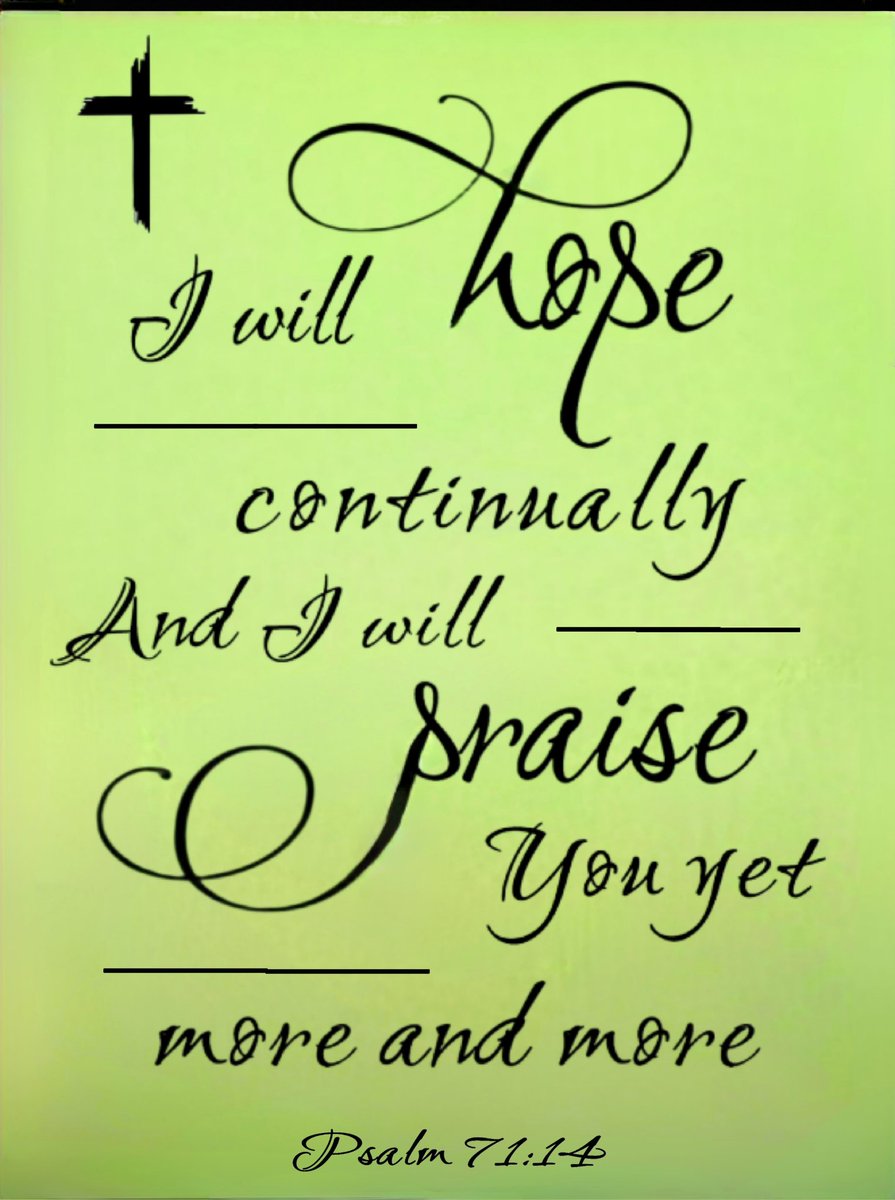 I will hope
continually
And I will
praise
You yet
more and more
Psalm 71:14